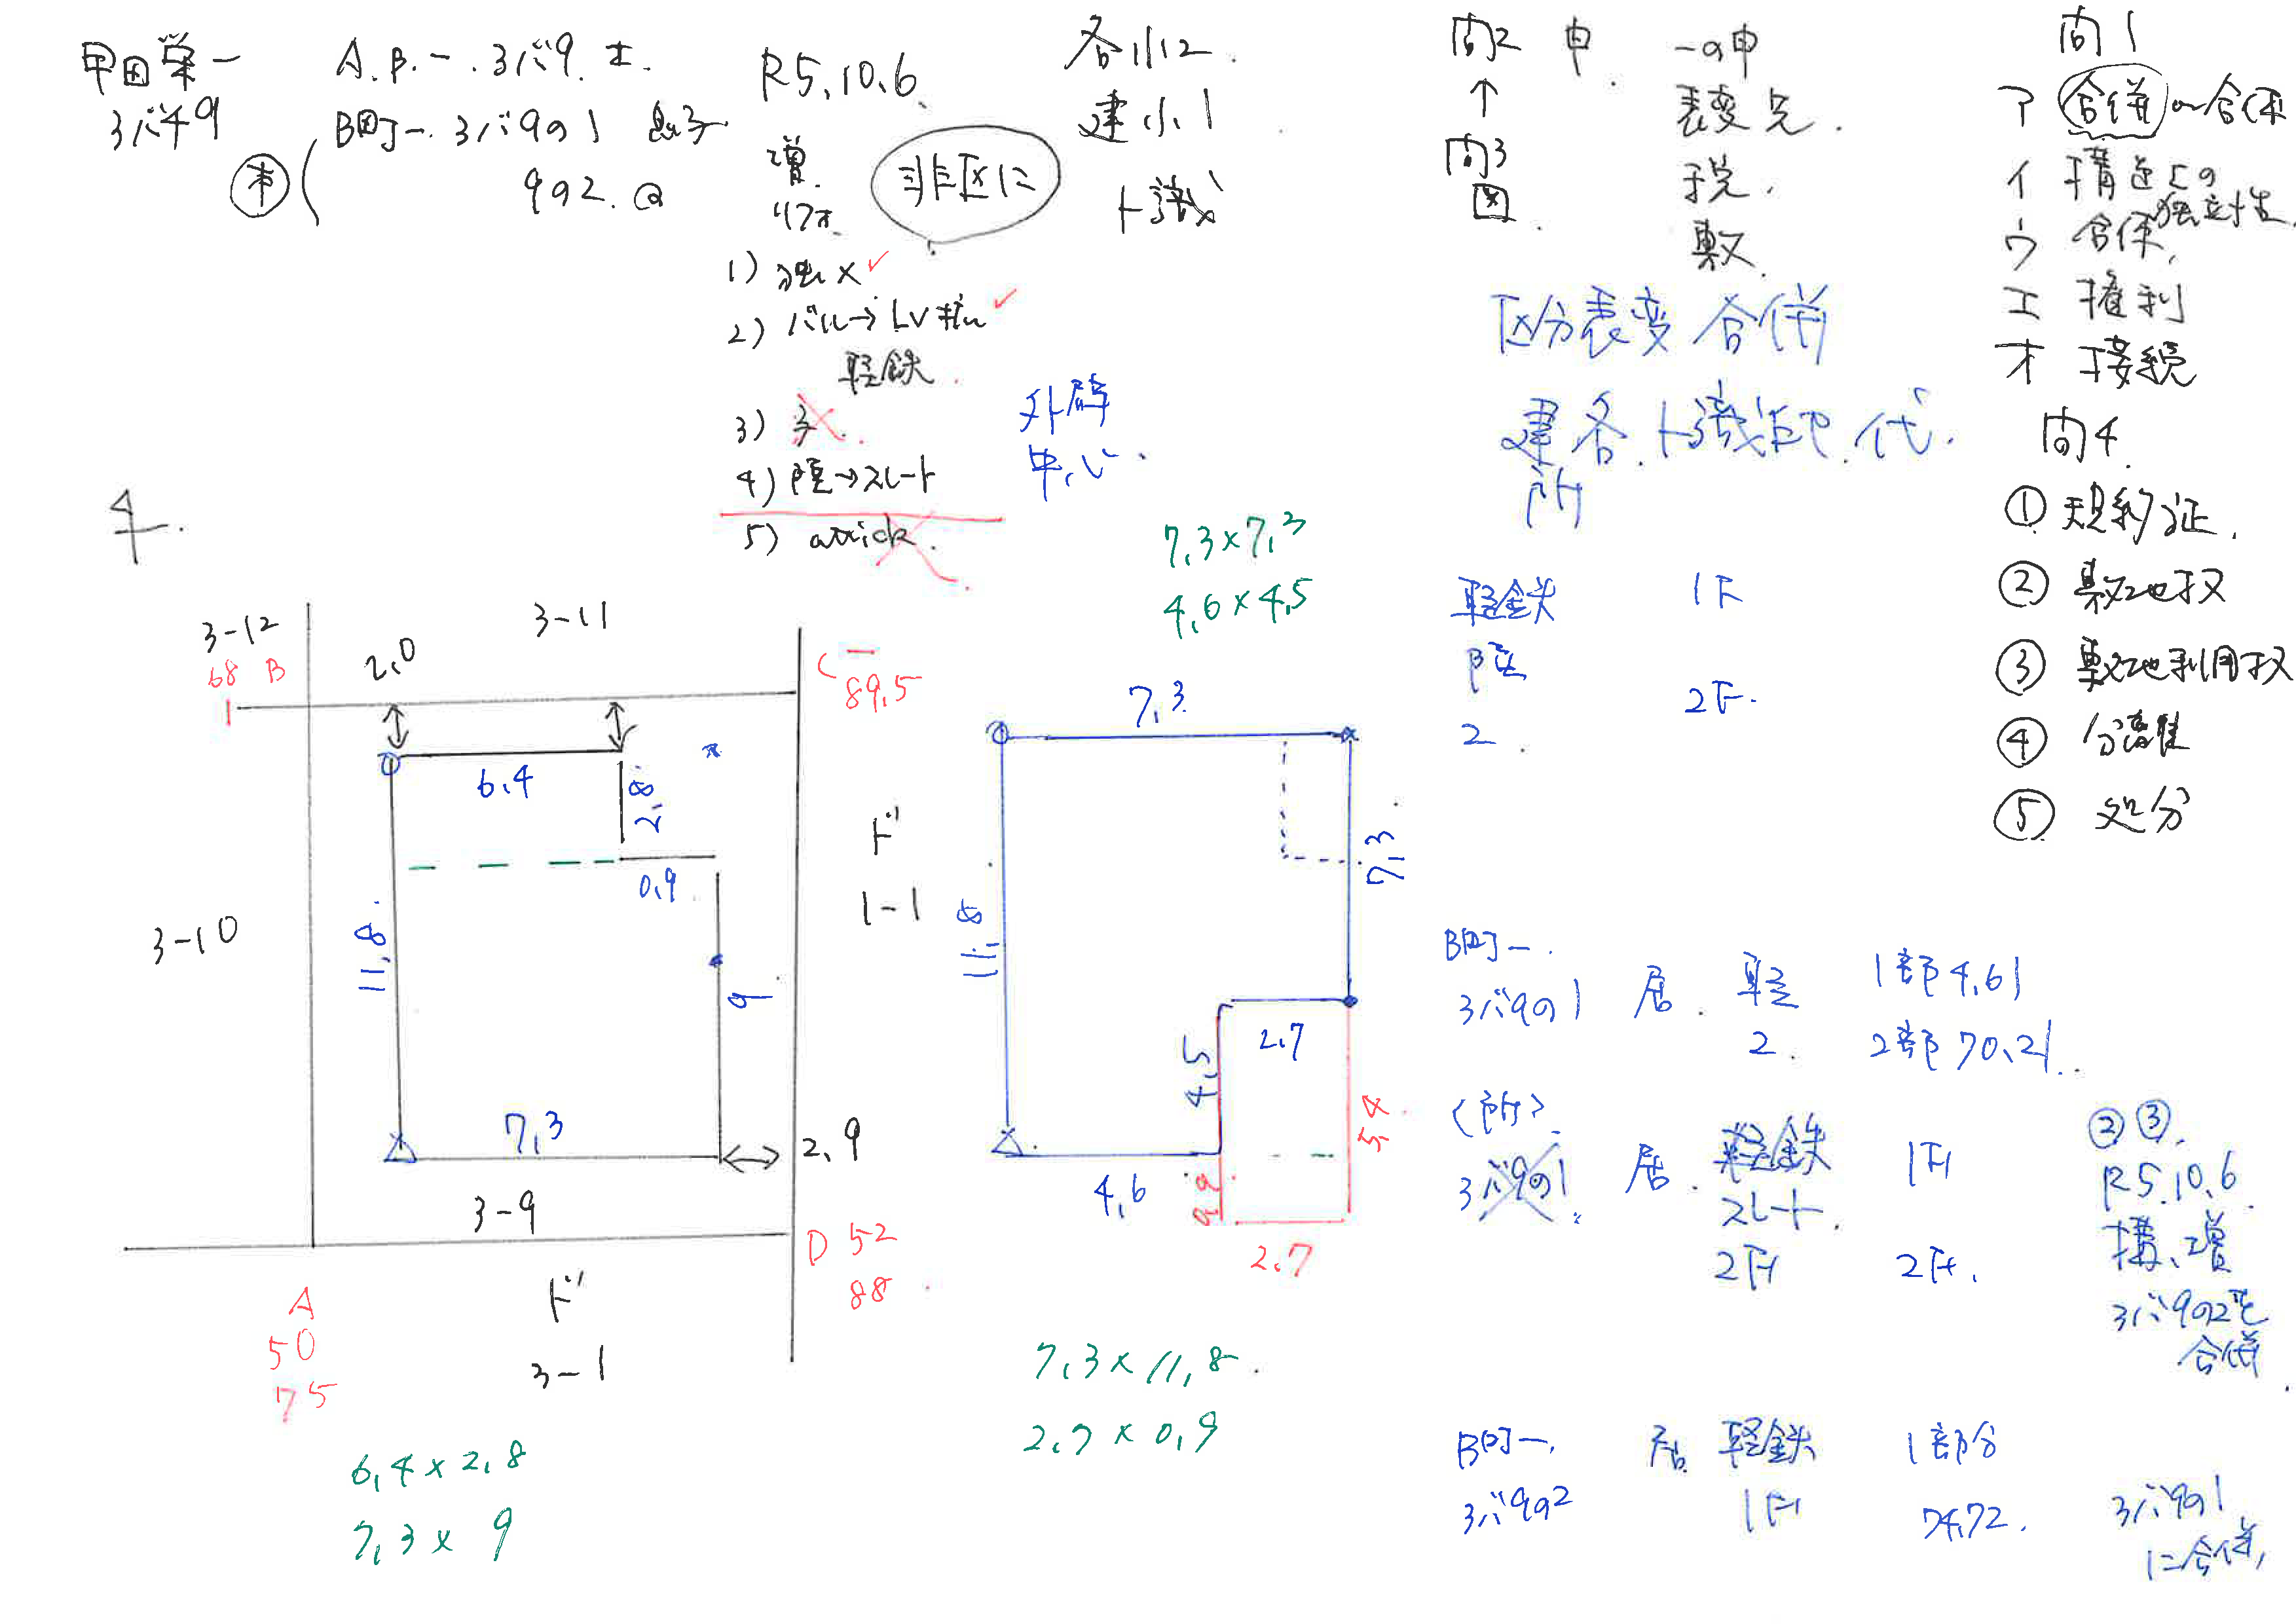 甲田栄一
3バ59
A.B.一.3バ9.土.
B町一.3バ9の1
9の2.
R5.10.6.
増.
非区に
各小12.
建小1
ト識
1) 独x
2) バル→LVギル
軽鉄.
3)
4) 陸→スレート
5) attick.
外壁
中心.
問2 申.
↑
問3
図.
一の申
表変兄.
税.
敷.
区分表変合併
建各.ト識.代.
所
問1
ア 合併〜合体
イ 構造上の
独立性
ウ 合体,
エ 権利
オ 接続
問4.
① 規約証.
② 敷地权
③ 敷地利用权
④ 分離
⑤ 処分
3-12
68 B
1
2.0
3-11
C
89.5
6.4
2.8
0.9
11.8
9
3-10
ド
1-1
7.3
2.9
3-9
D 52
88
A
50
75
ド
3-1
6.4×2.8
7.3× 9
7.3×7.3
4.6×4.5
7.3
7.3
11.8
2.7
4.5
5.4
4.6
0.9
2.7
7.3×11.8
2.7×0.9
軽鉄 1F
陸 2F.
2.
B町一.
3バ9の1 居. 軽 1部4.61
2. 2部70.21.
(所)
3バ9の1 居. 軽鉄 1F
スレート.
2F 2F.
②③.
R5.10.6
構、増
3バ9の2を
合併
B町一. 居. 軽鉄 1部分
3バ9の2 1F 74.72.
3バ9の1
に合併,